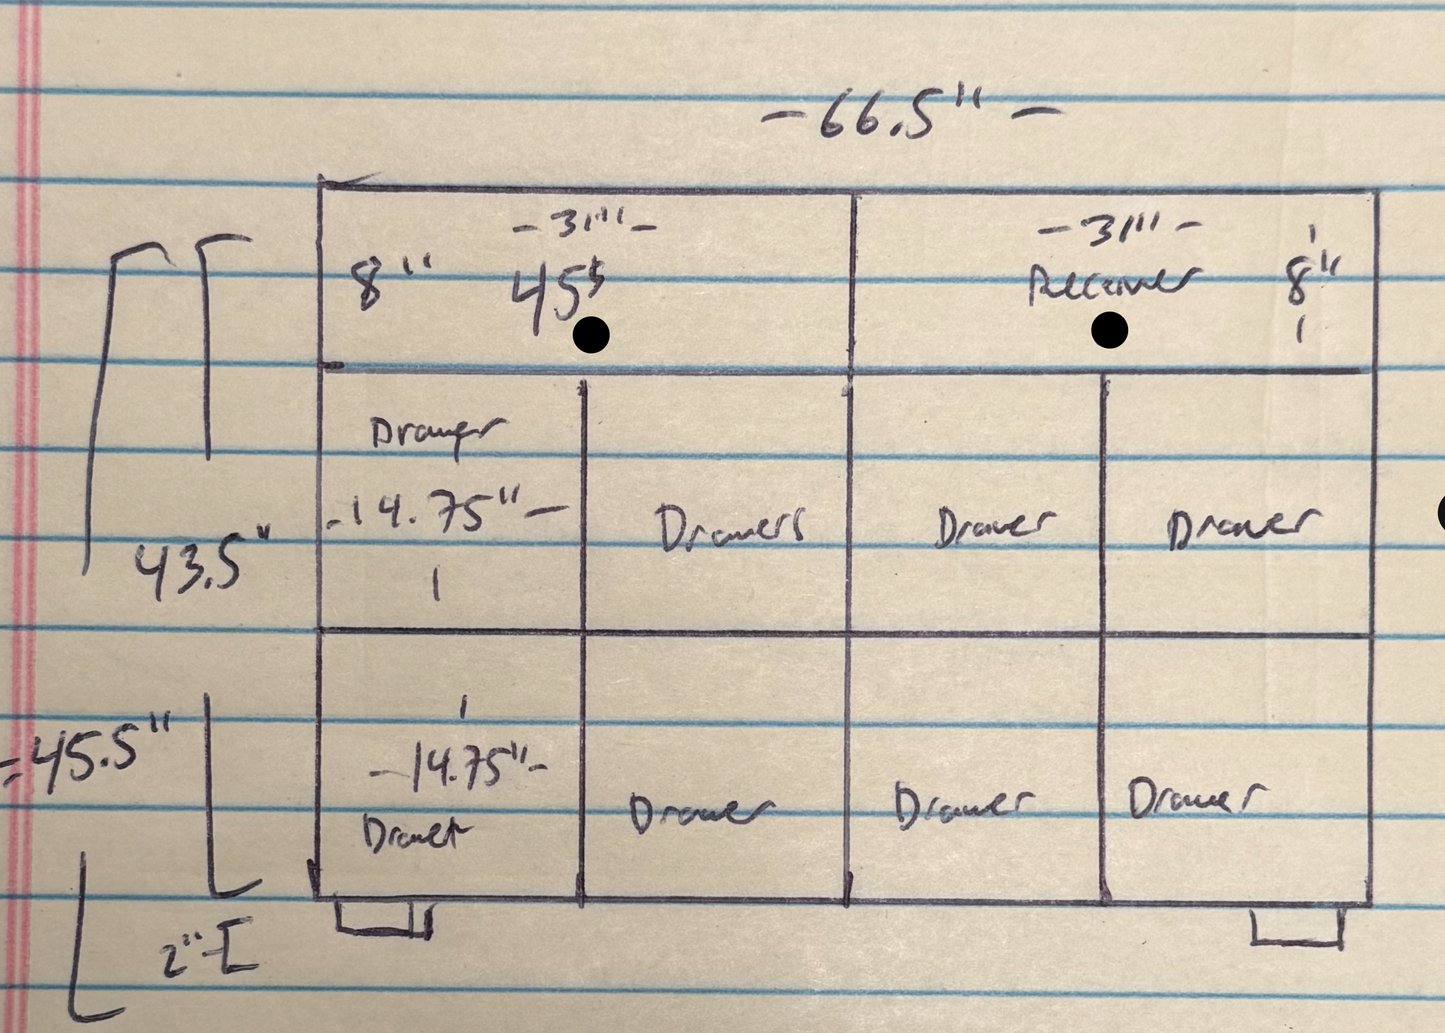 -66.5"-
-31"-
-31"-
8"
45s
Receiver
8"
Drawer
-14.75"-
Drawers
Drawer
Drawer
43.5"
45.5"
-14.75"-
Drawer
Drawer
Drawer
Drawer
2"